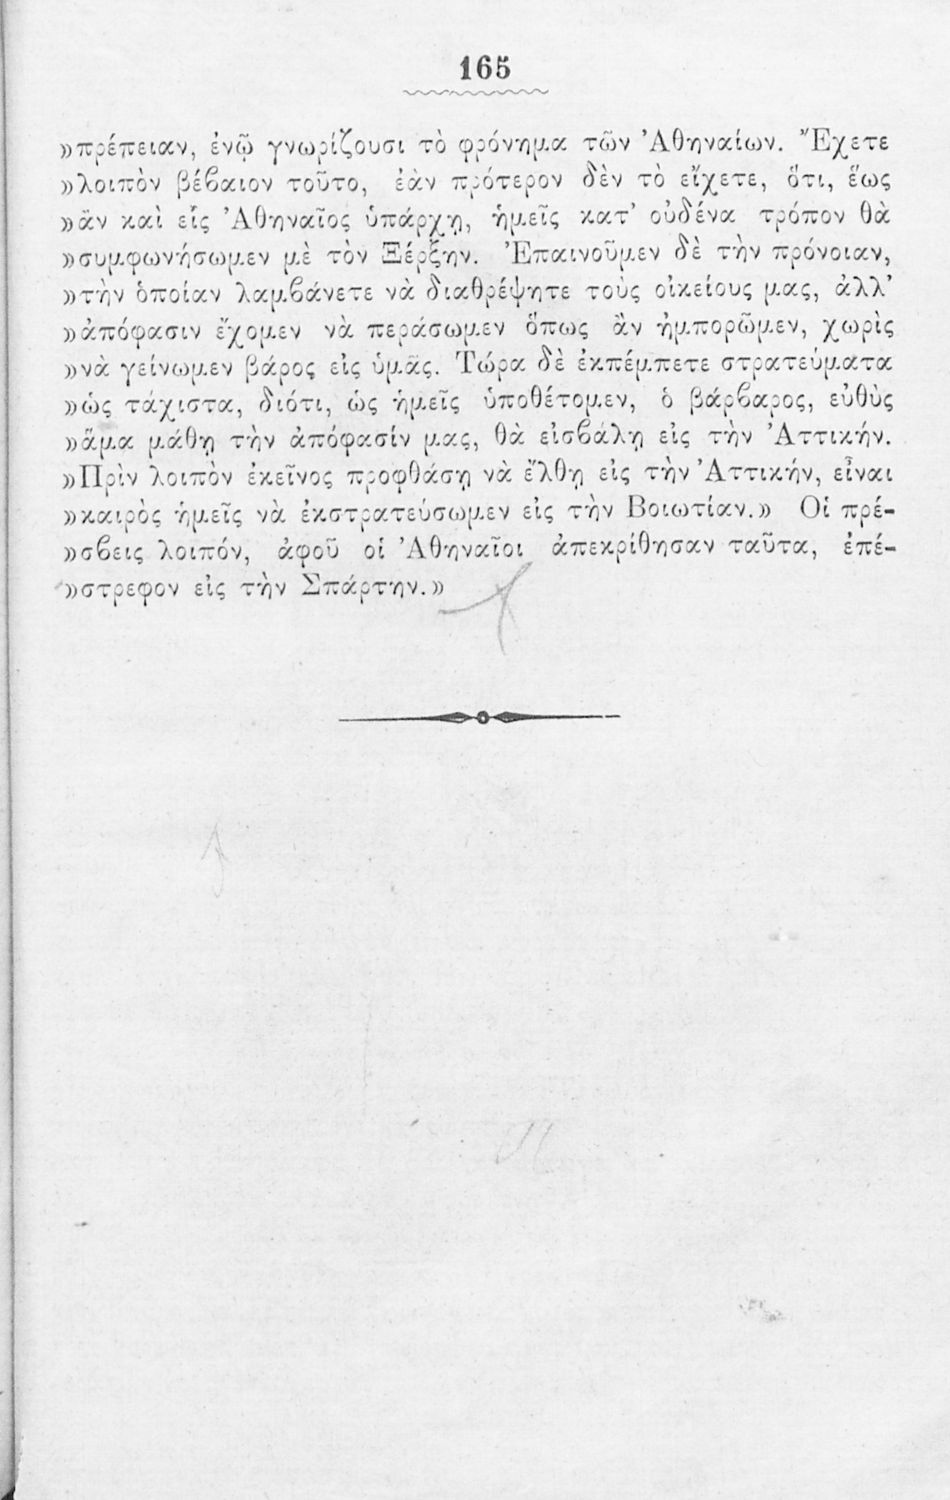 165
»πρέπειαν, ἐνῷ γνωρίζουσι τὸ φρόνημα τῶν Ἀθηναίων. Ἔχετε
»λοιπὸν βέβαιον τοῦτο, ἐὰν πρότερον δὲν τὸ εἴχετε, ὅτι, ἕως
»ἂν καὶ εἷς Ἀθηναῖος ὑπάρχῃ, ἡμεῖς κατ’ οὐδένα τρόπον θὰ
»συμφωνήσωμεν μὲ τὸν Ξέρξην. Ἐπαινοῦμεν δὲ τὴν πρόνοιαν,
»τὴν ὁποίαν λαμβάνετε νὰ διαθρέψητε τοὺς οἰκείους μας, ἀλλ’
»ἀπόφασιν ἔχομεν νὰ περάσωμεν ὅπως ἂν ἠμπορῶμεν, χωρὶς
»νὰ γείνωμεν βάρος εἰς ὑμᾶς. Τώρα δὲ ἐκπέμπετε στρατεύματα
»ὡς τάχιστα, διότι, ὡς ἡμεῖς ὑποθέτομεν, ὁ βάρβαρος, εὐθὺς
»ἅμα μάθῃ τὴν ἀπόφασίν μας, θὰ εἰσβάλῃ εἰς τὴν Ἀττικήν.
»Πρὶν λοιπὸν ἐκεῖνος προφθάσῃ νὰ ἔλθῃ εἰς τὴν Ἀττικήν, εἶναι
»καιρὸς ἡμεῖς νὰ ἐκστρατεύσωμεν εἰς τὴν Βοιωτίαν.» Οἱ πρέ-
»σβεις λοιπόν, ἀφοῦ οἱ Ἀθηναῖοι ἀπεκρίθησαν ταῦτα, ἐπέ-
»στρεφον εἰς τὴν Σπάρτην.»